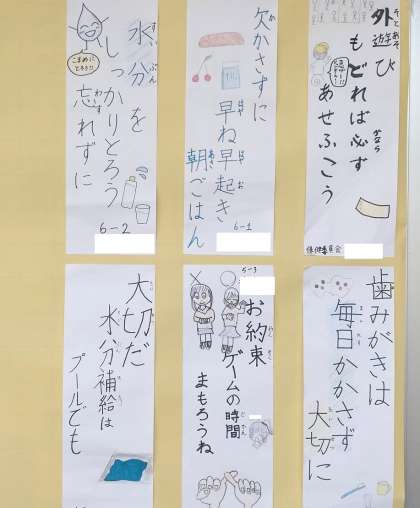 外遊び
もどれば必ず
あせふこう
保健委員会
欠かさずに
早ね早起き
朝ごはん
6-1
水分を
しっかりとろう
忘れずに
こまめに
とろう!!
6-2
歯みがきは
毎日かかさず
大切に
5-3
お約束
ゲームの時間
まもろうね
大切だ
水分補給は
プールでも